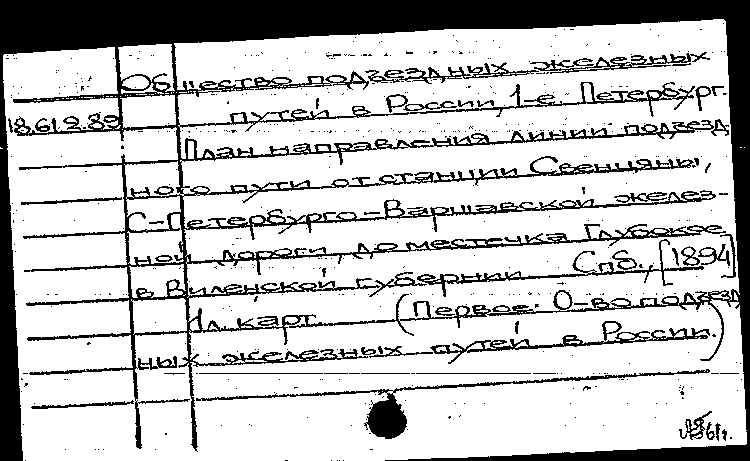 Общество подъездных железных
путей в России, 1-е. Петербург.
18.61.2.89
План направления линии подъезд
ного пути от станции Свенцяны,
С-Петербурго-Варшавской желез-
ной дороги, до местечка Глубокое
в Виленской губернии. Спб., [1894]
1л. карт. (Первое. О-во подъезд
ных железных путей в России.)